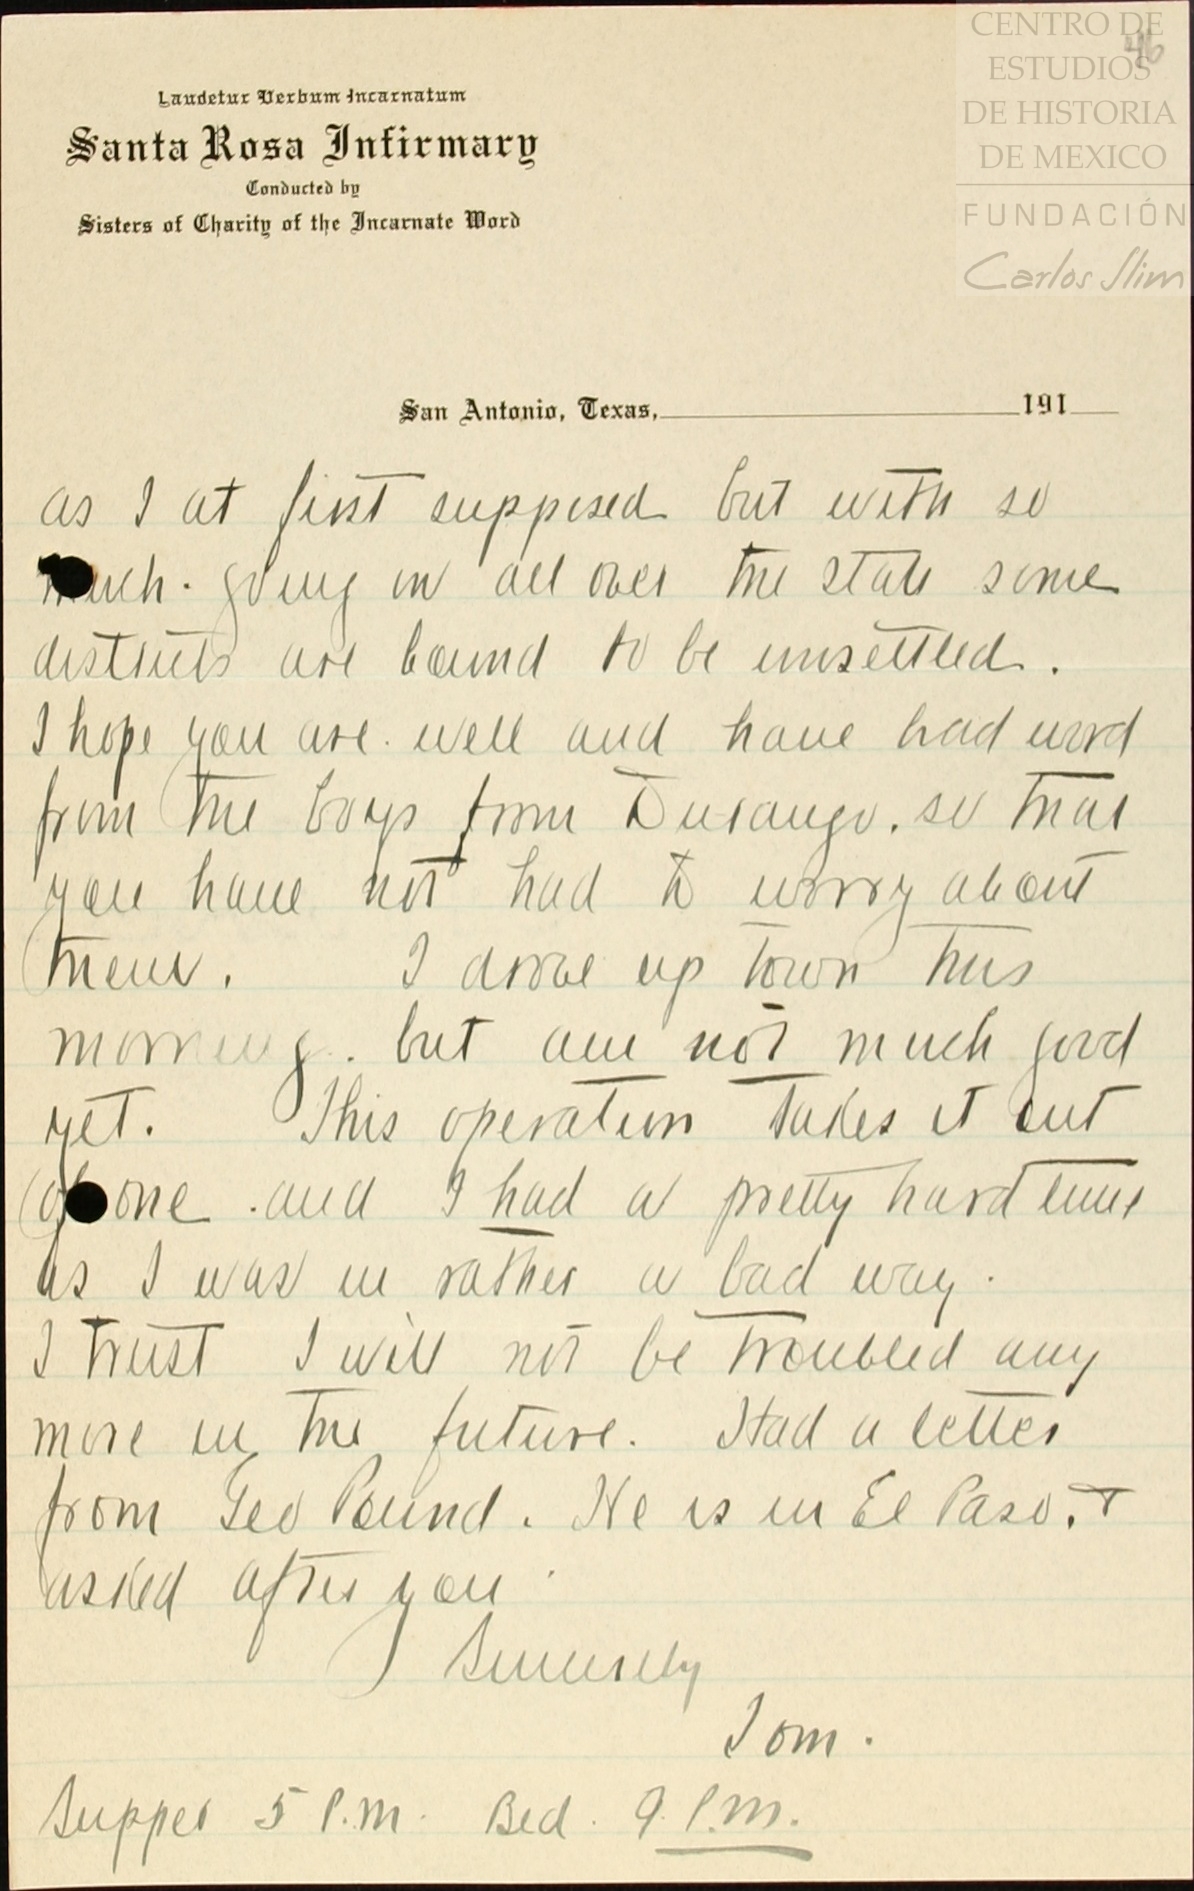 CENTRO DE
ESTUDIOS
DE HISTORIA
DE MEXICO
FUNDACIÓN
Carlos Slim
46
Laudetur Verbum Incarnatum
Santa Rosa Infirmary
Conducted by
Sisters of Charity of the Incarnate Word
San Antonio, Texas, 191
as I at first supposed but with so
much. going on all over the state some
districts are bound to be unsettled.
I hope you are. well and have had word
from the boys from Durango. so that
you have not had to worry about
them. I drove up town this
morning. but am not much good
yet. This operation takes it out
of one. and I had a pretty hard time
as I was in rather a bad way.
I trust I will not be troubled any
more in the future. Had a letter
from Geo Pound. He is in El Paso. &
asked after you.
Sincerely
Tom.
Supper 5 P.M. Bed. 9. P.M.